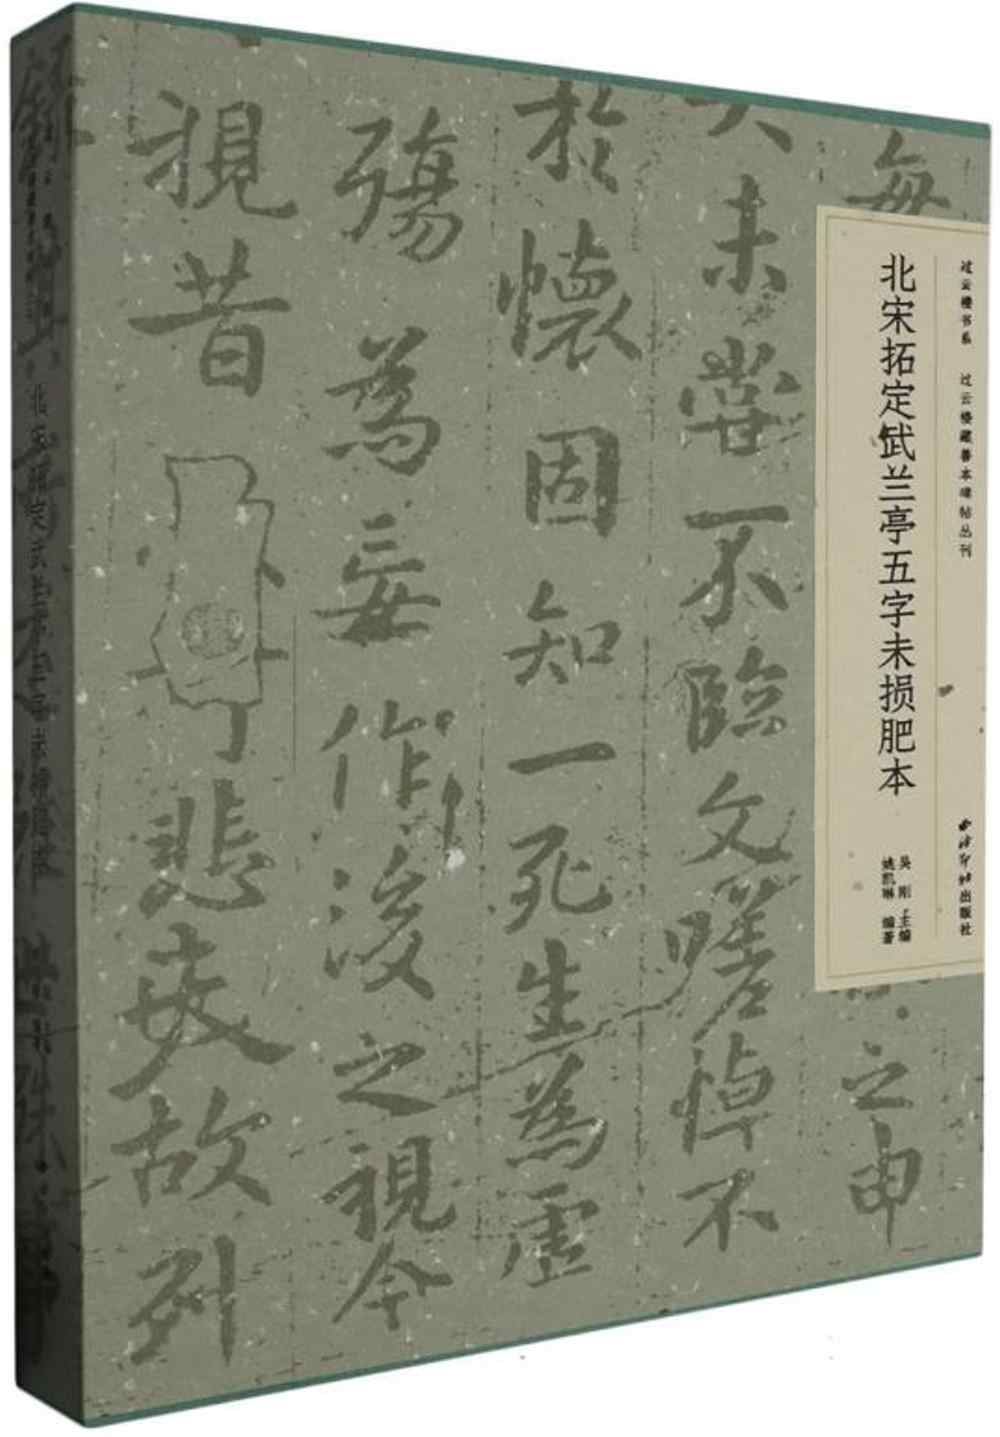 过云楼书系 过云楼藏善本碑帖丛刊
北宋拓定武兰亭五字未损肥本
吴刚 主编
姚凯琳 编著
西泠印社出版社
每
之申
大未甞不臨文嗟悼不
於懷固知一死生為虛
殤為妄作後之視今
視昔
悲夫故列
北宋拓定武兰亭五字未损肥本